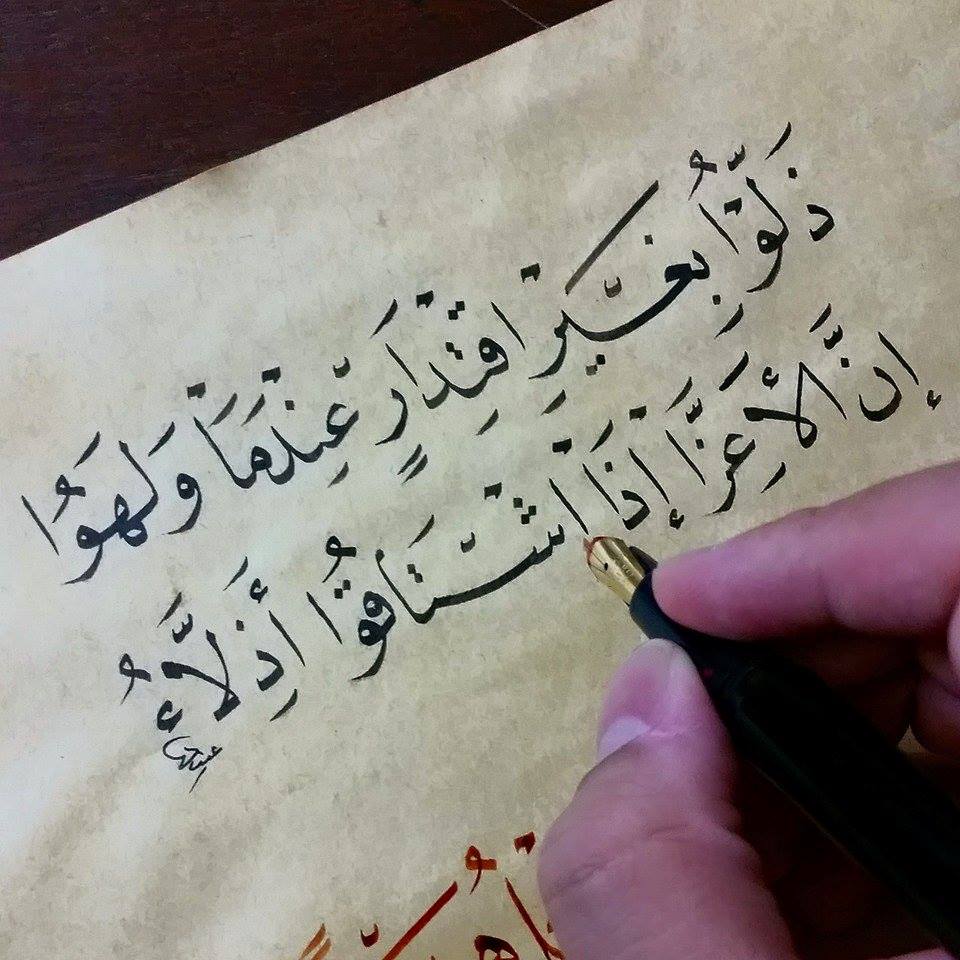 ذَلُّوا بِغَيْرِ اقْتِدَارٍ عِنْدَمَا وَلِهُوا
إِنَّ الأَعِزَّا إِذَا اشْتَاقُوا أَذِلَّاءُ